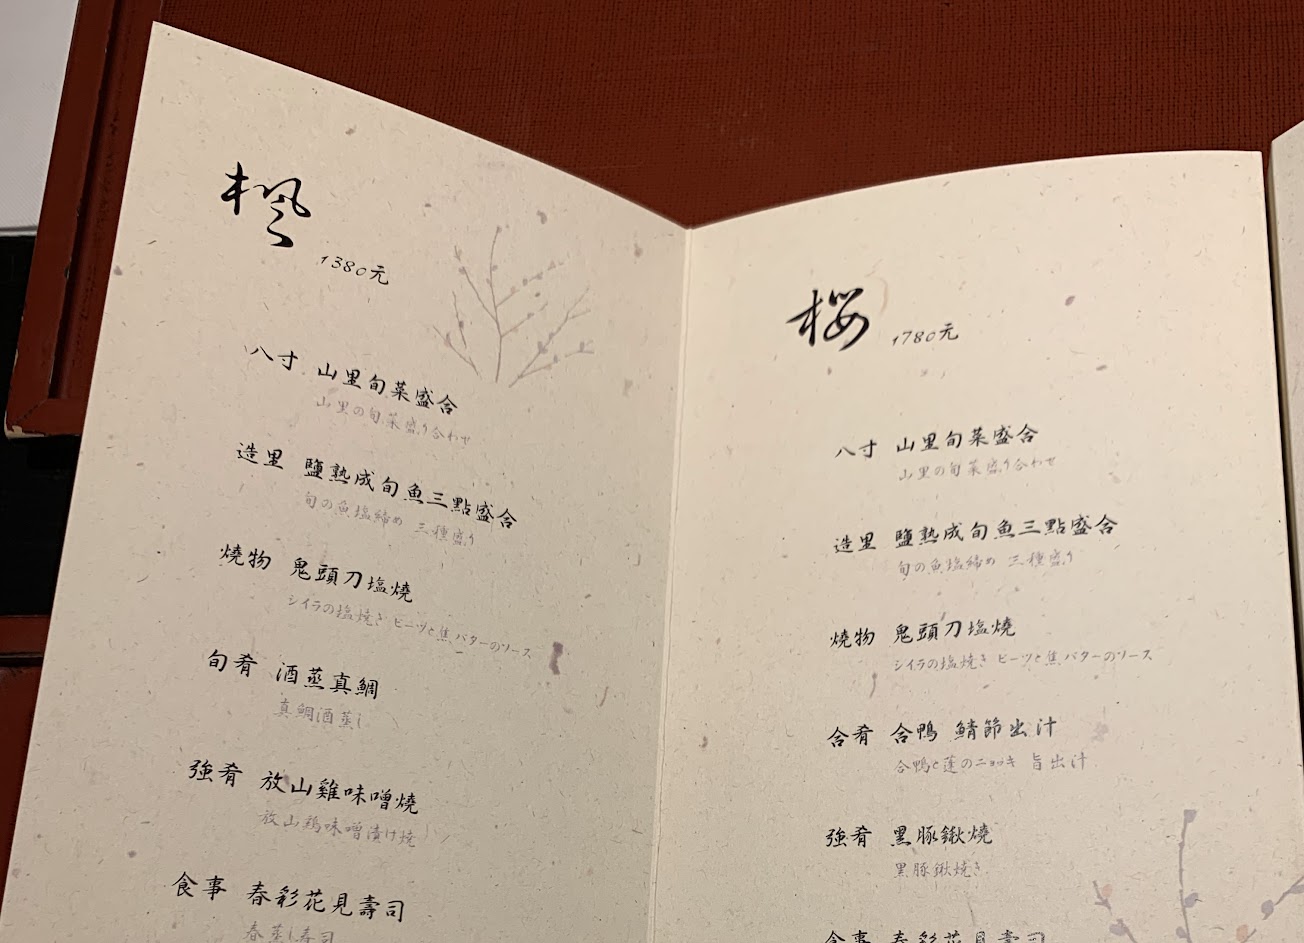 楓
1380元
八寸 山里旬菜盛合
山里の旬菜盛り合わせ
造里 鹽熟成旬魚三點盛合
旬の魚塩締め 三種盛り
燒物 鬼頭刀塩燒
シイラの塩焼き ビーツと焦バターのソース
旬肴 酒蒸真鯛
真鯛酒蒸し
強肴 放山雞味噌燒
放山鶏味噌漬け焼
食事 春彩花見壽司
春蒸し寿司
桜
1780元
八寸 山里旬菜盛合
山里の旬菜盛り合わせ
造里 鹽熟成旬魚三點盛合
旬の魚塩締め 三種盛り
燒物 鬼頭刀塩燒
シイラの塩焼き ビーツと焦バターのソース
合肴 合鴨 鯖節出汁
合鴨と蓮のニョッキ 旨出汁
強肴 黑豚鍬燒
黒豚鍬焼き
食事 春彩花見壽司